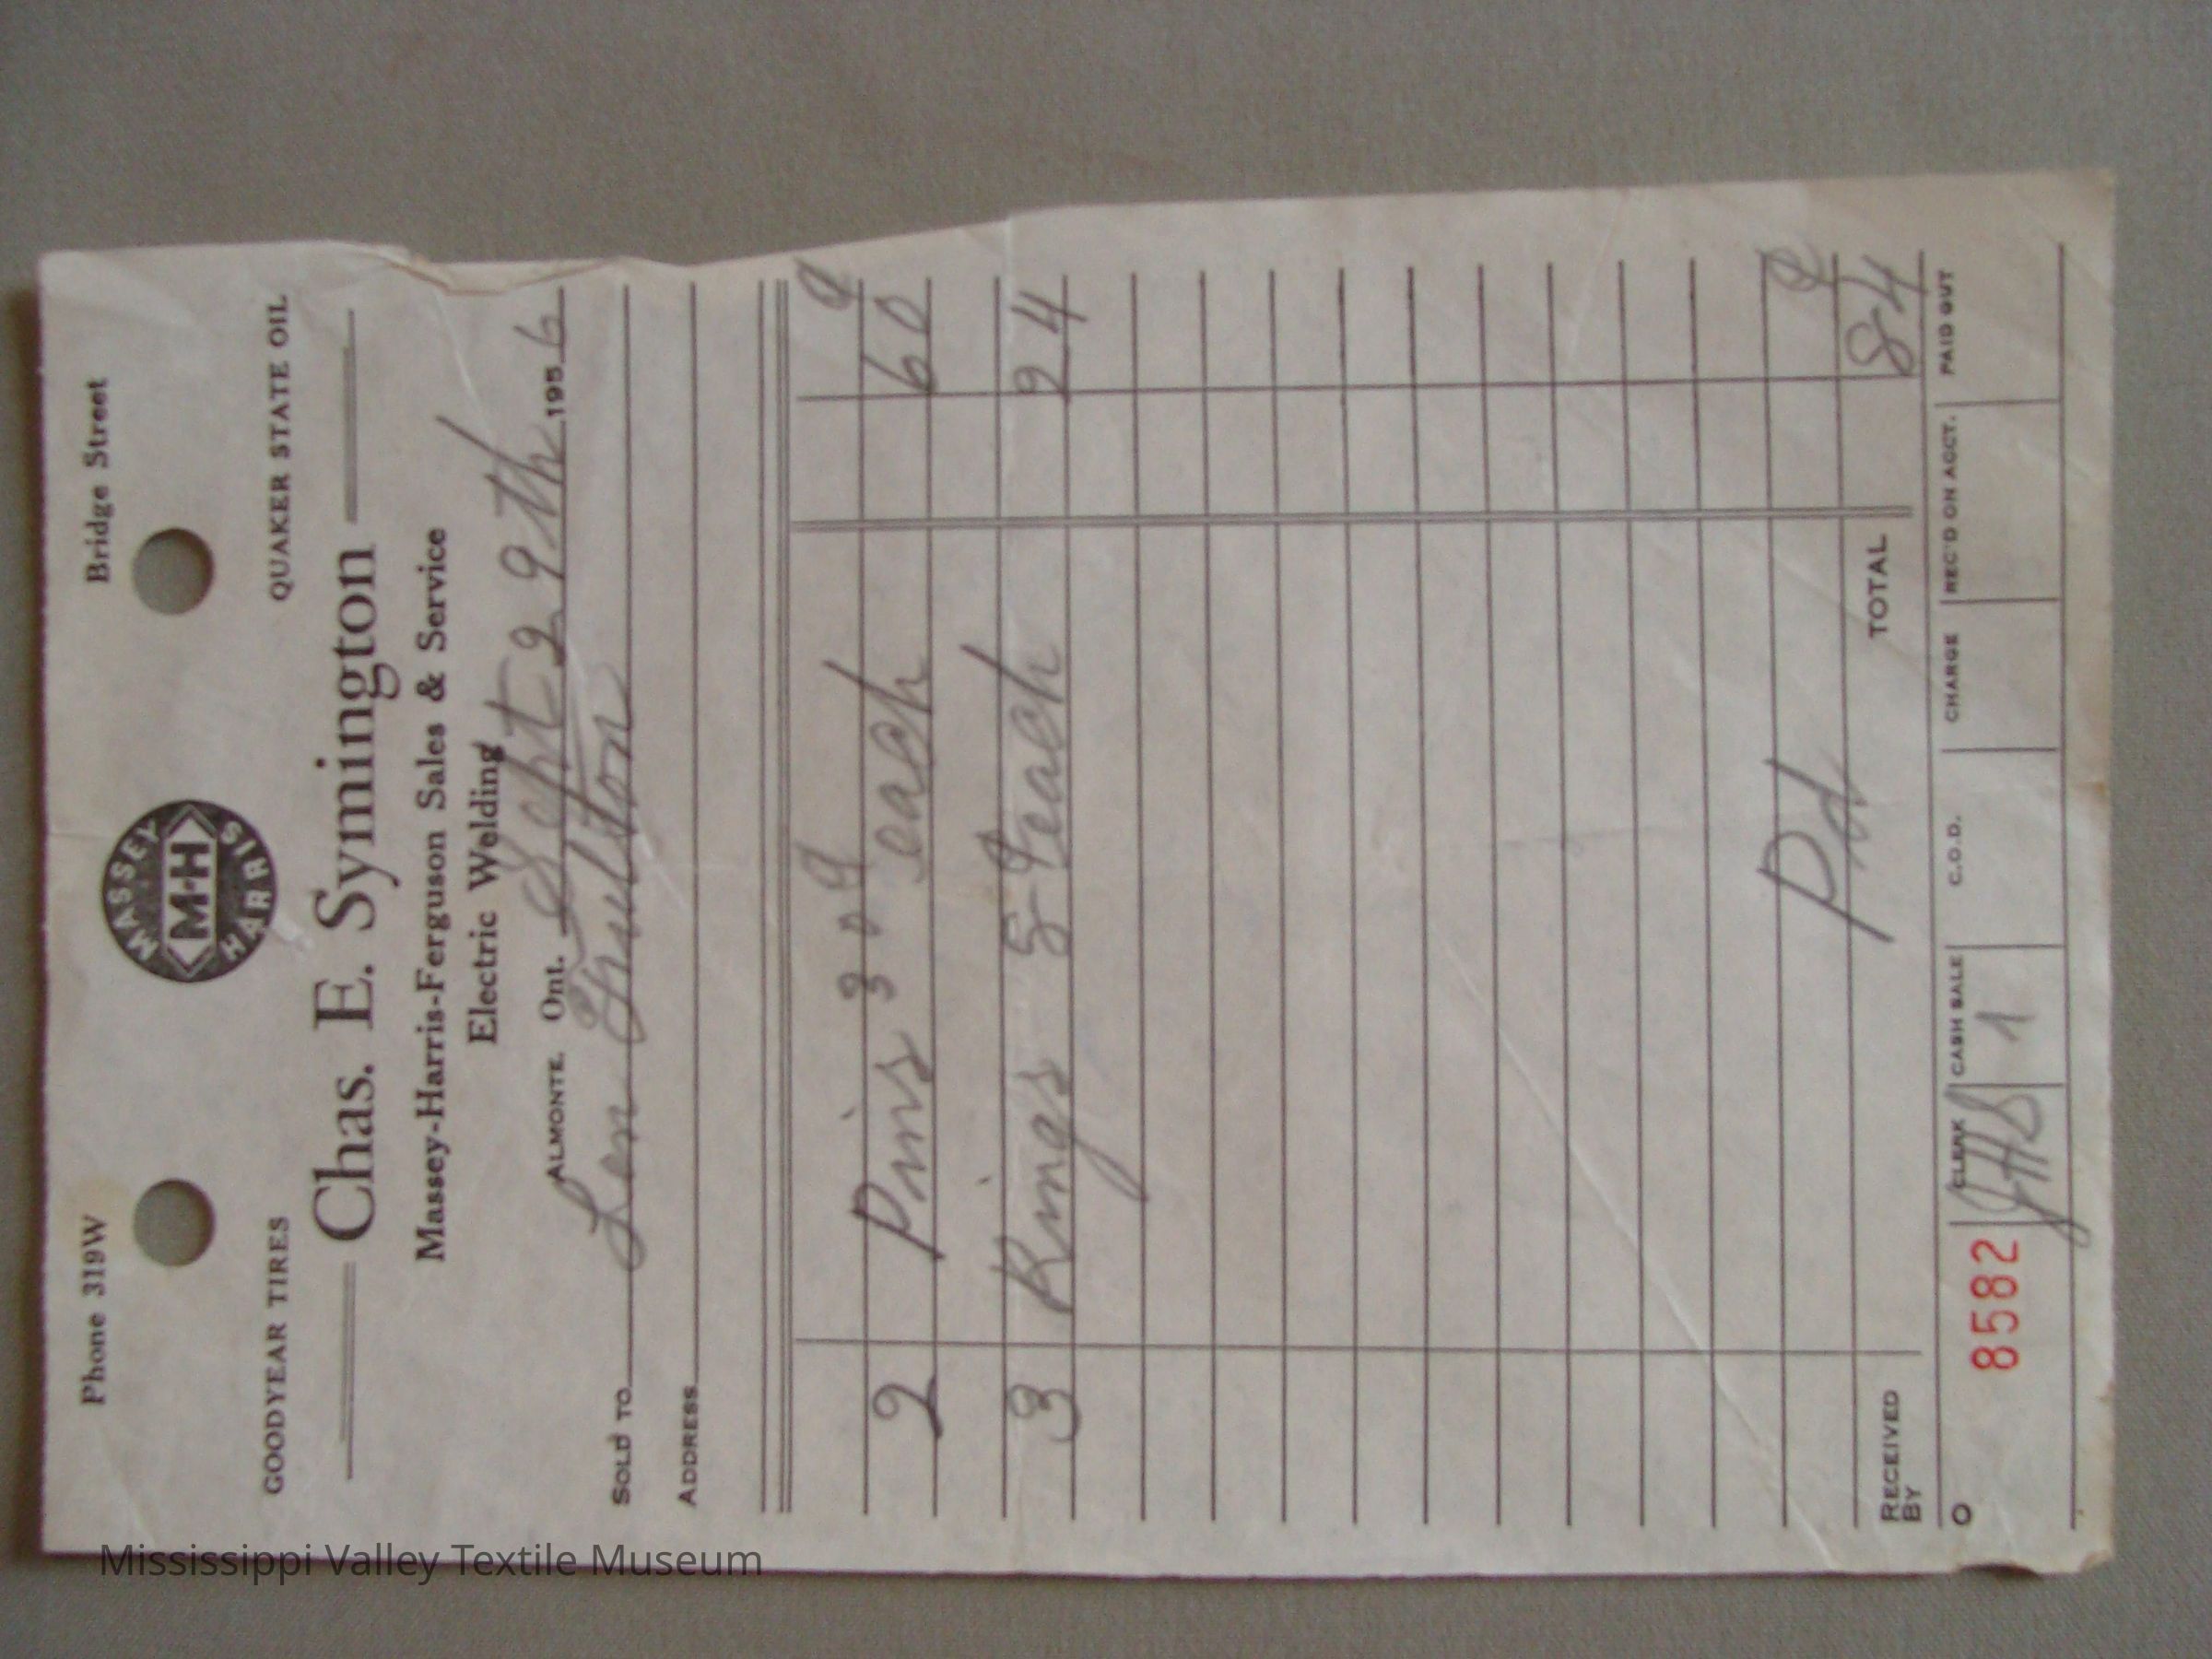 Phone 319W Bridge Street
MASSEY
M-H
HARRIS
GOODYEAR TIRES QUAKER STATE OIL
Chas. E. Symington
Massey-Harris-Ferguson Sales & Service
Electric Welding
ALMONTE Ont. Sept 29th 1956
SOLD TO Len
ADDRESS
2 Pins 30¢ each 60¢
3 Rings 8¢ each 24
Pd
RECEIVED BY TOTAL 84¢
CLERK CASH SALE C.O.D. CHARGE REC'D ON ACCT. PAID OUT
8582 JHS 1
Mississippi Valley Textile Museum